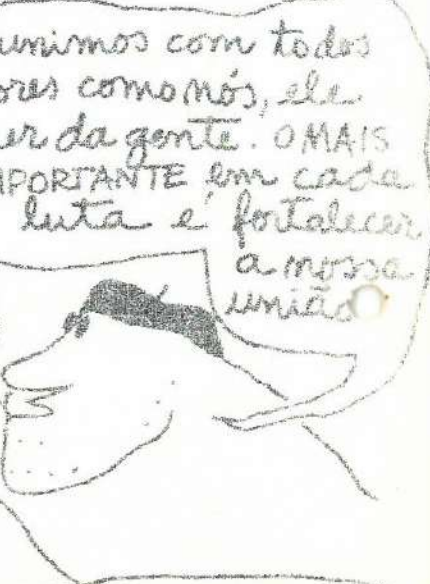 unimos com todos
ores como nós, ele
er da gente. O MAIS
MPORTANTE em cada
luta é fortalecer
a nossa
união